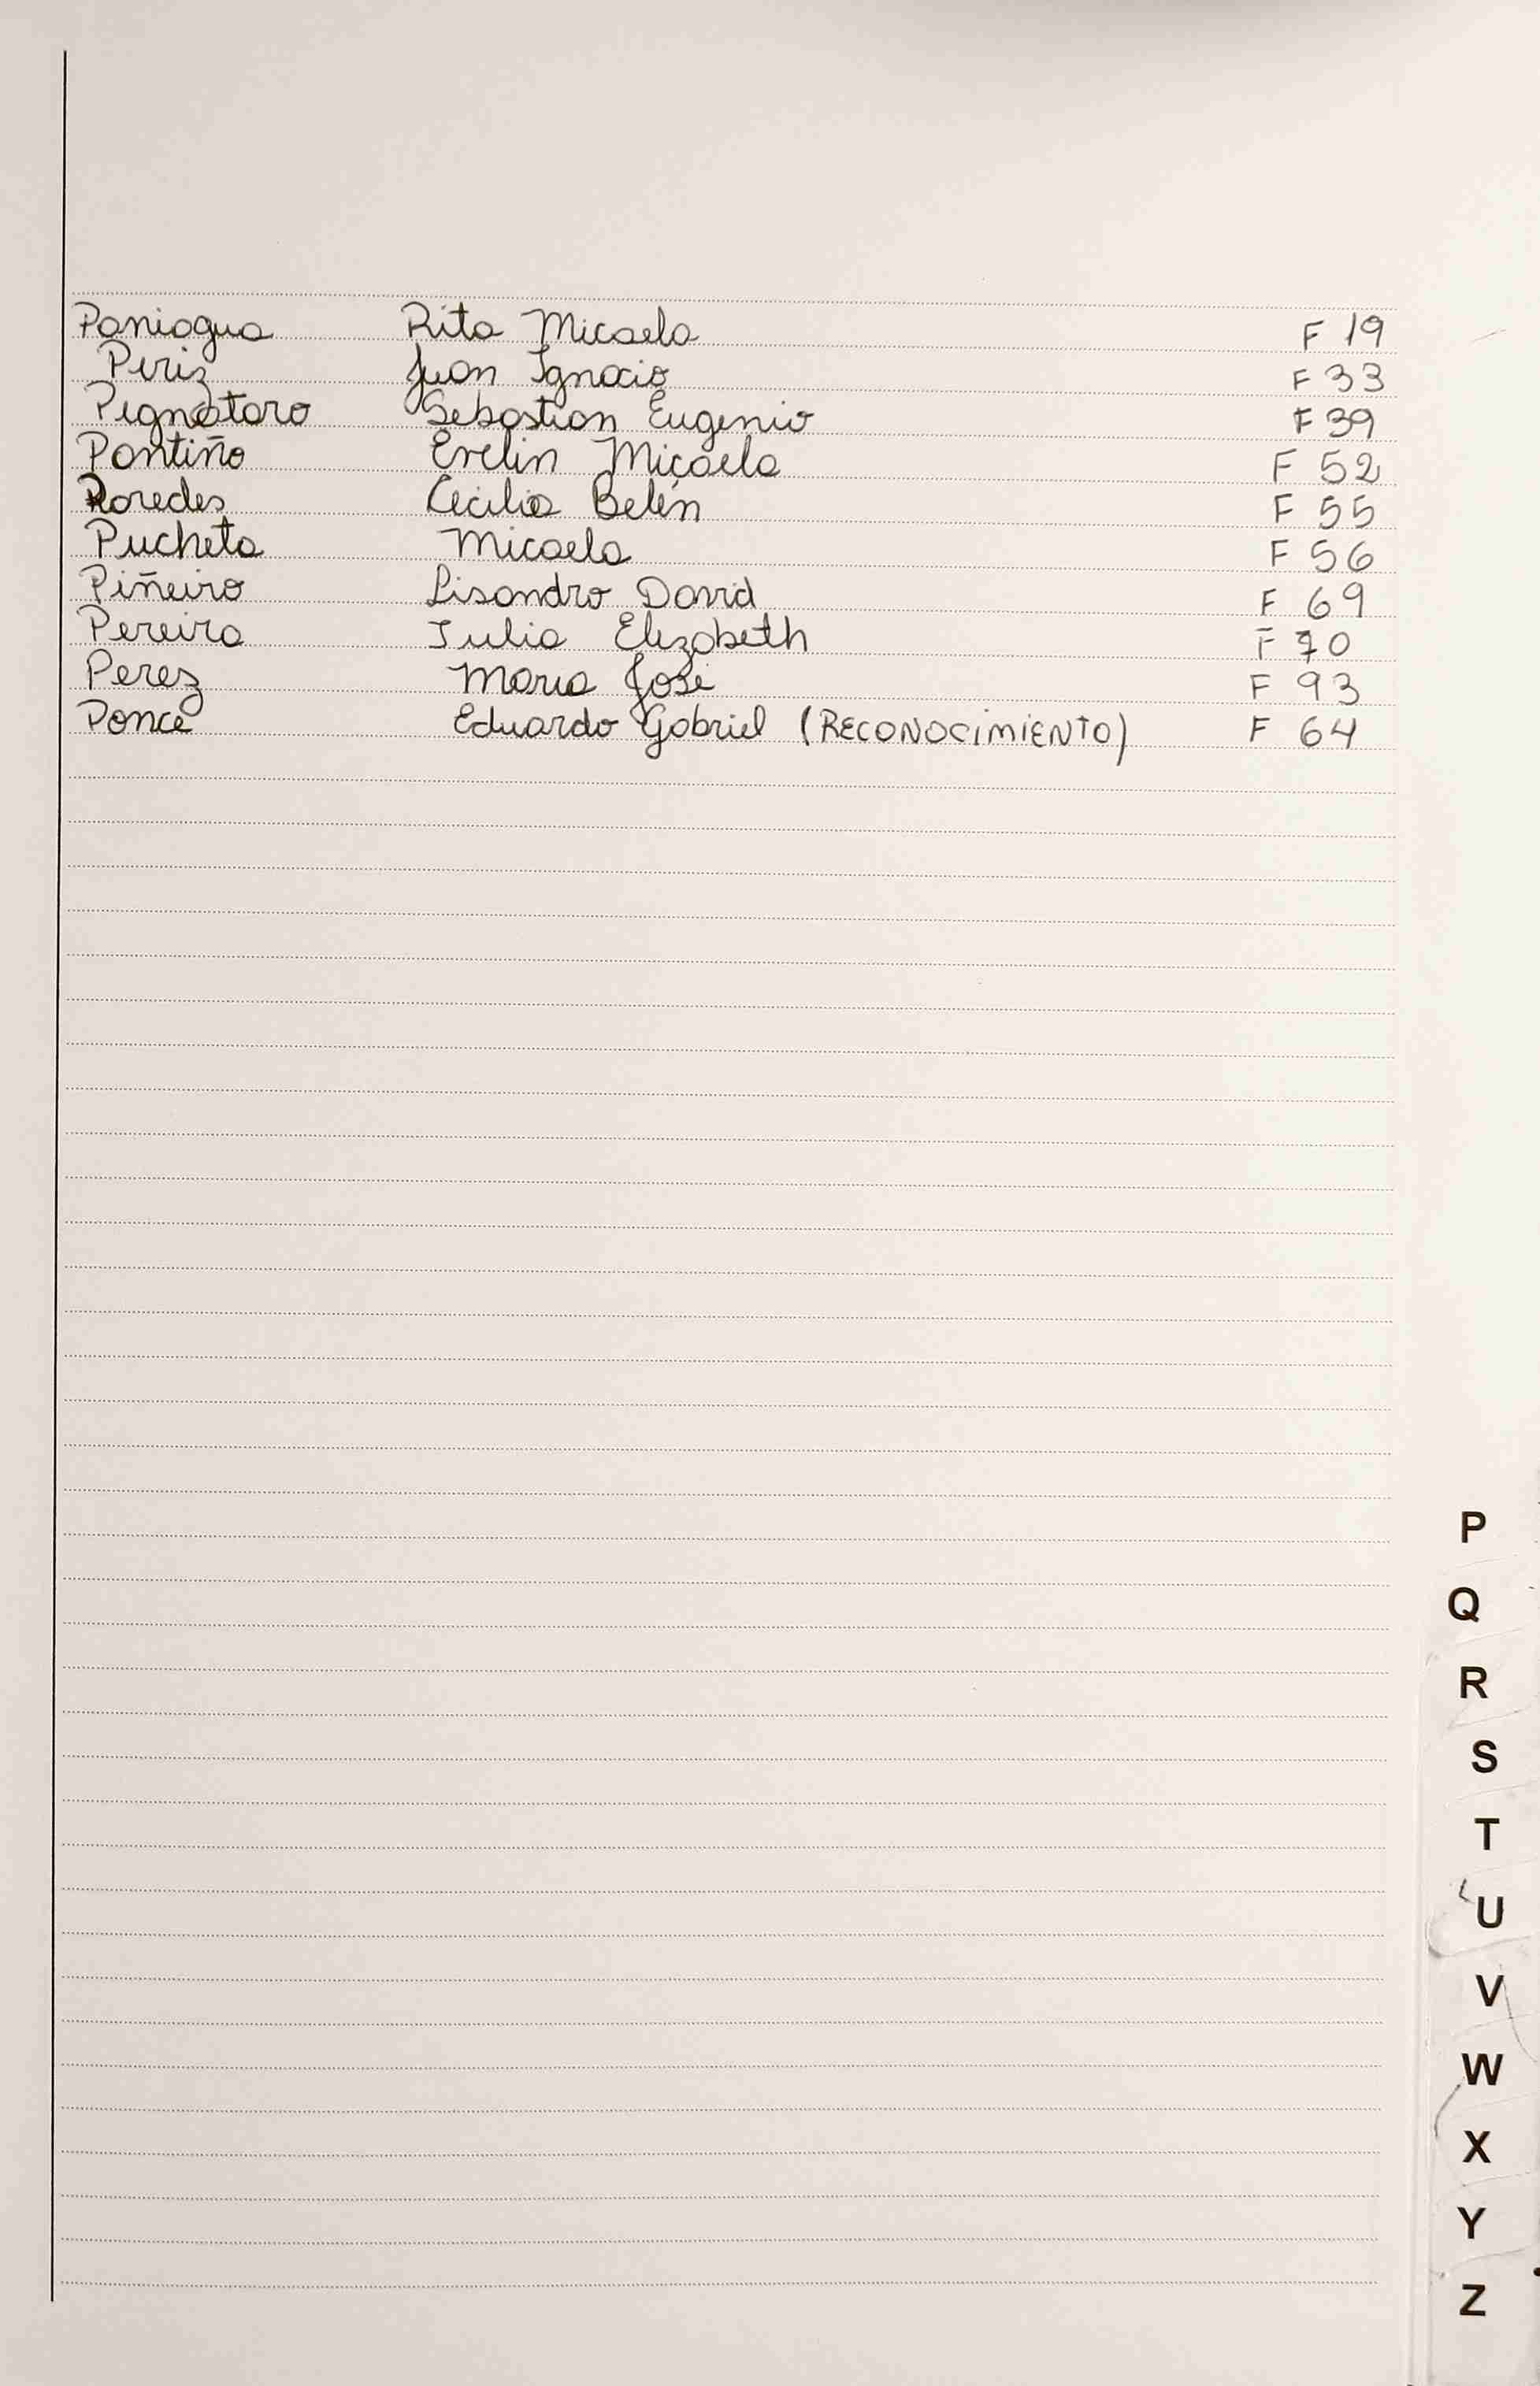 Paniagua Rita Micaela F 19
Periz Juan Ignacio F 33
Pignataro Sebastian Eugenio F 39
Pontiño Evelin Micaela F 52
Paredes Cecilia Belén F 55
Pucheta Micaela F 56
Piñeiro Lisandro David F 69
Pereira Julia Elizabeth F 70
Perez Maria José F 93
Ponce Eduardo Gabriel (RECONOCIMIENTO) F 64
P
Q
R
S
T
U
V
W
X
Y
Z